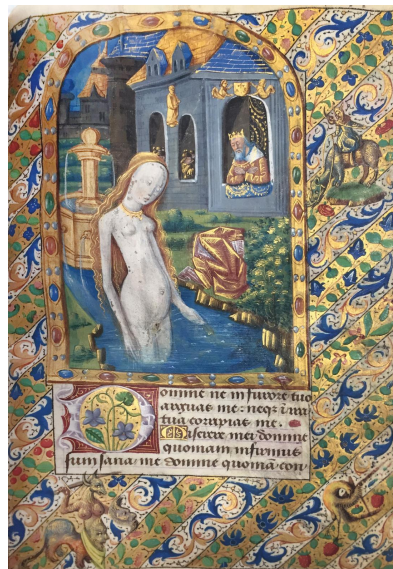 Domine ne in furore tuo
arguas me: neqꝫ i ira
tua corripias me.
Miserere mei domine
quoniam infirmus
sum sana me domine quoniā con